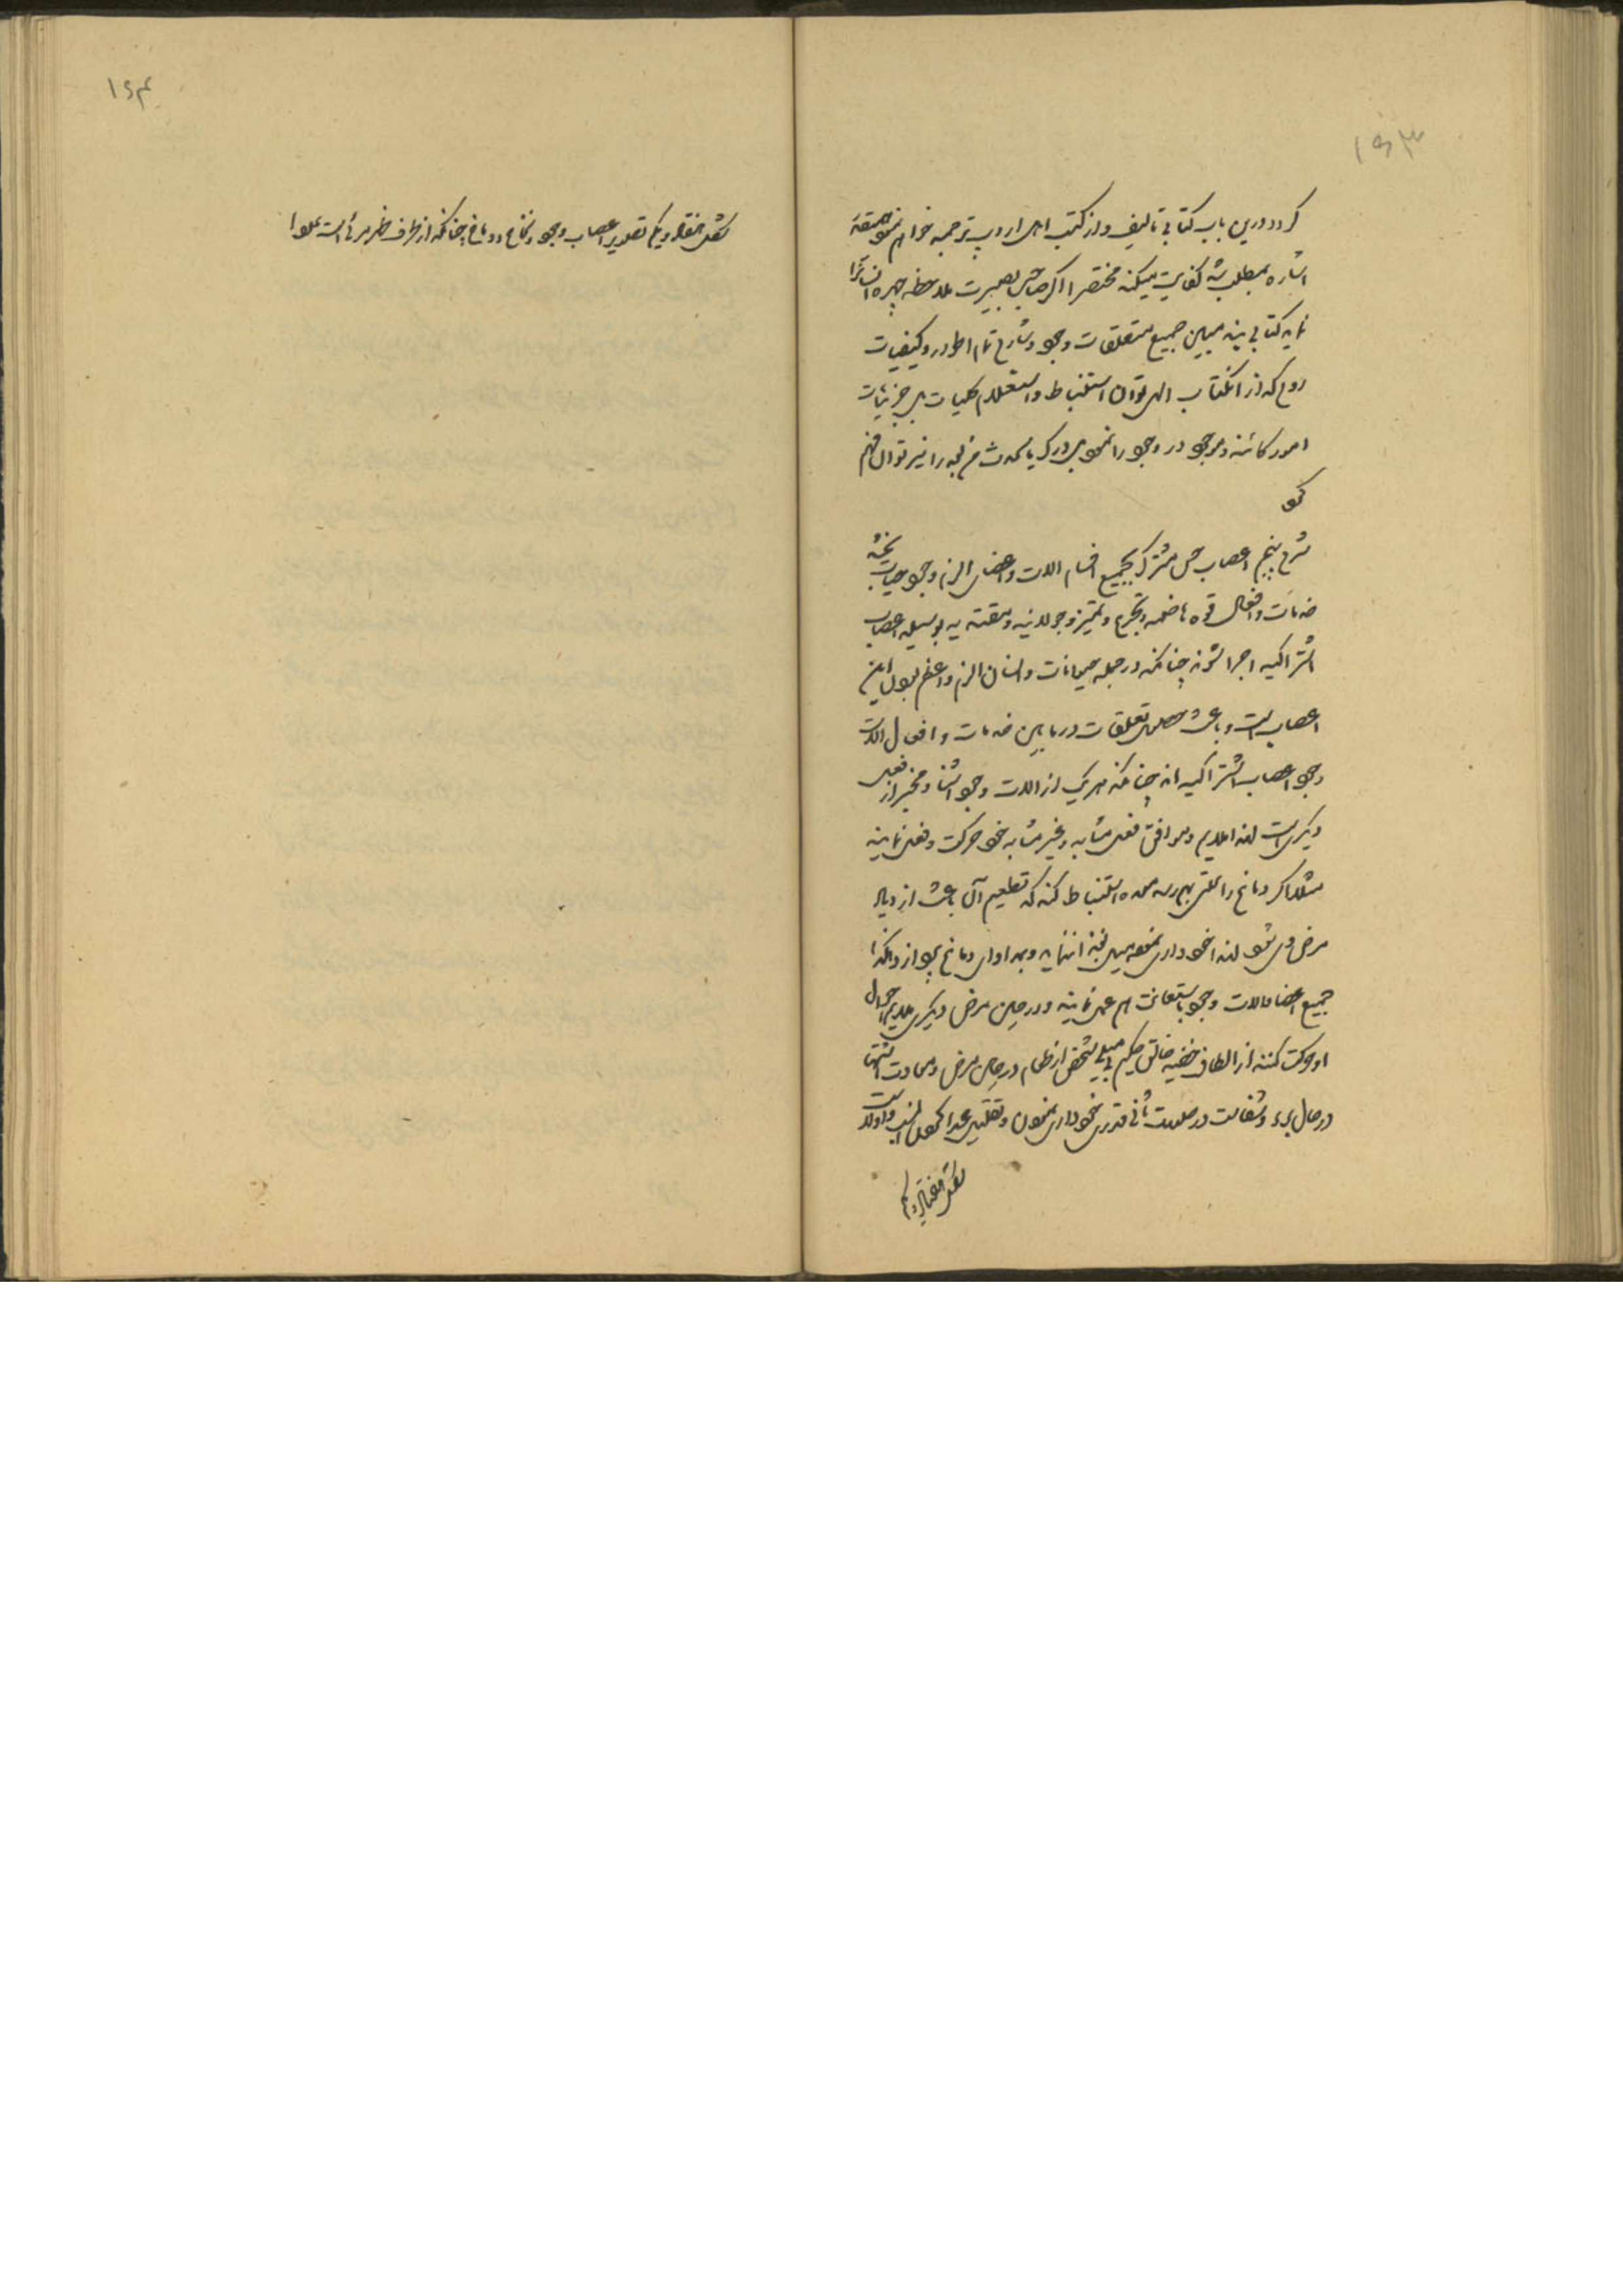 ۱۶۳
کرد درین باب کتابی تالیف و از کتب اهل اروپ ترجمه خواهم نمود
اشاره بمطلب شد کفایت میکند مختصرا اگر صاحب بصیرت ملاحظه چهره انسانرا
نماید کتابی بیند مبین جمیع متعلقات وجود و شارح تمام اطوار و کیفیات
روح که از انکتاب الهی توان استنباط و استعلام کلیات بل جزئیات
امور کائنه و موجود در وجود را نمود بل درک یا سمت خرجه را نیز توان فهم
نمود
شرح پنجم اعصاب حس مشترک بجمیع اقسام الات و اعضای الزم وجود حیات بخشد
خدمات و افعال قوه هاضمه و تجرع و تمییز و جولانیه و متقنه یه بوسیله اعصاب
اشتراکیه اجرا شوند چنانکه در جمله حیوانات و انسان الزم و اعظم این
اعصابست و باعث تعلقات در مابین خدمات و افعال الات
وجود اعصاب اشتراکیه اند چنانکه هر یک از الات وجود اشنا و مخبر از فعل
دیگریست لهذا ملایم و موافق فعل مشابه و غیر مشابه خود حرکت و فعل نمایند
مثلا اگر دماغ را علتی بهم رسد معده استنباط کند که تطعیم آن باعث ازدیاد
مرض وی شود لهذا خود داری نموده میل بغذا ننماید و بمداوای دماغ پردازد و هکذا
جمیع اعضا و الات وجود باستعانت هم عمل نمایند و در حین مرض دیگری ملایم احوال
او حرکت کنند از الطاف خفیه خالق حکیم بی میلی شخص از طعام در حین مرض و معاودت اشتها
در حال برء و شفاست در صورت ثانی قدری خود داری نمودن و تقلیل غذا کمال انسب و اولاست
شکل هفتاد و یکم
۱۶۴
شکل هفتاد و یکم تصویر اعصاب وجود و نخاع و دماغ چنانکه از طرف ظهر مرئی است علوا